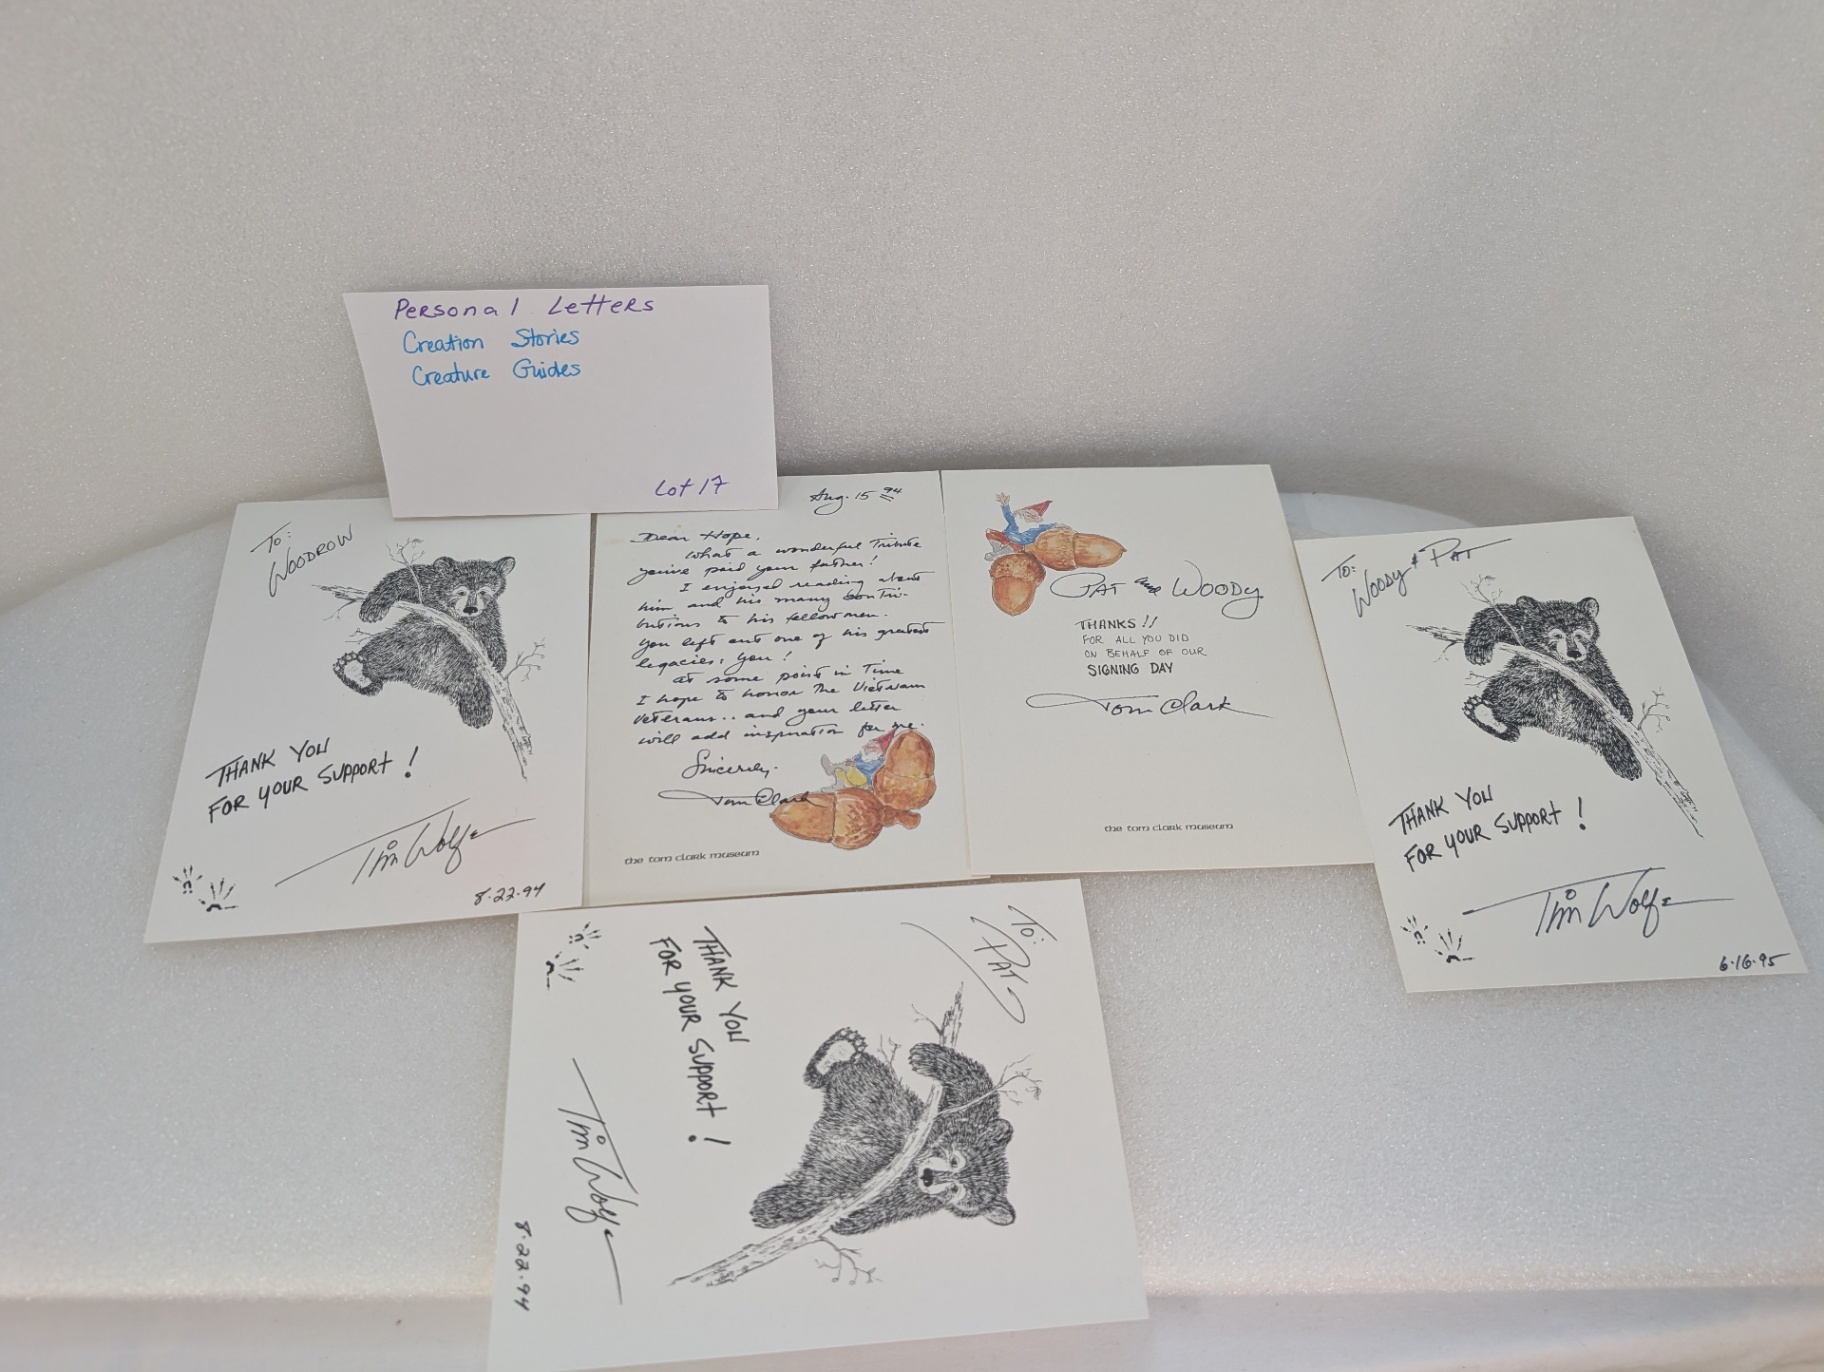 Personal Letters
Creation Stories
Creature Guides
Lot 17
To:
WOODROW
THANK YOU
FOR YOUR SUPPORT!
Tim Wolfe
8·22·94
Aug. 15 94
Dear Hope,
What a wonderful Tribute
you've paid your father!
I enjoyed reading about
him and his many contri-
butions to his fellowmen.
You left out one of his greatest
legacies, you!
At some point in Time
I hope to honor the Vietnam
Veterans.. and your letter
will add inspiration for me.
Sincerely.
Tom Clark
the tom clark museum
PAT and WOODY
THANKS!!
FOR ALL YOU DID
ON BEHALF OF OUR
SIGNING DAY
Tom Clark
the tom clark museum
TO:
WOODY & PAT
THANK YOU
FOR YOUR SUPPORT!
Tim Wolfe
6·16·95
To:
PAT
THANK YOU
FOR YOUR SUPPORT!
Tim Wolfe
8·22·94